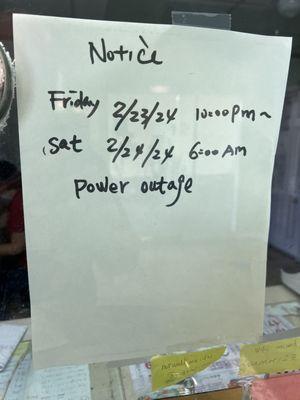 Notice
Friday 2/23/24 10:00pm~
Sat 2/24/24 6:00AM
power outage